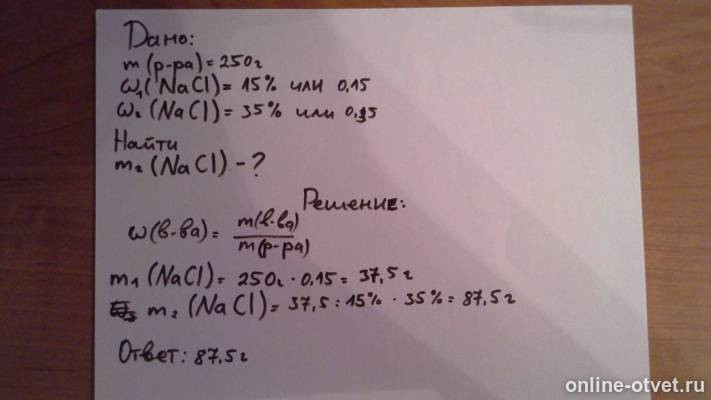 Дано:
m (р-ра) = 250г
ω₁(NaCl) = 15% или 0,15
ω₂ (NaCl) = 35% или 0,35
Найти
m₂ (NaCl) - ?
Решение:
ω(в-ва) = m(в-ва) / m(р-ра)
m₁ (NaCl) = 250г · 0,15 = 37,5г
m₂ (NaCl) = 37,5 : 15% · 35% = 87,5г
Ответ: 87,5г
online-otvet.ru